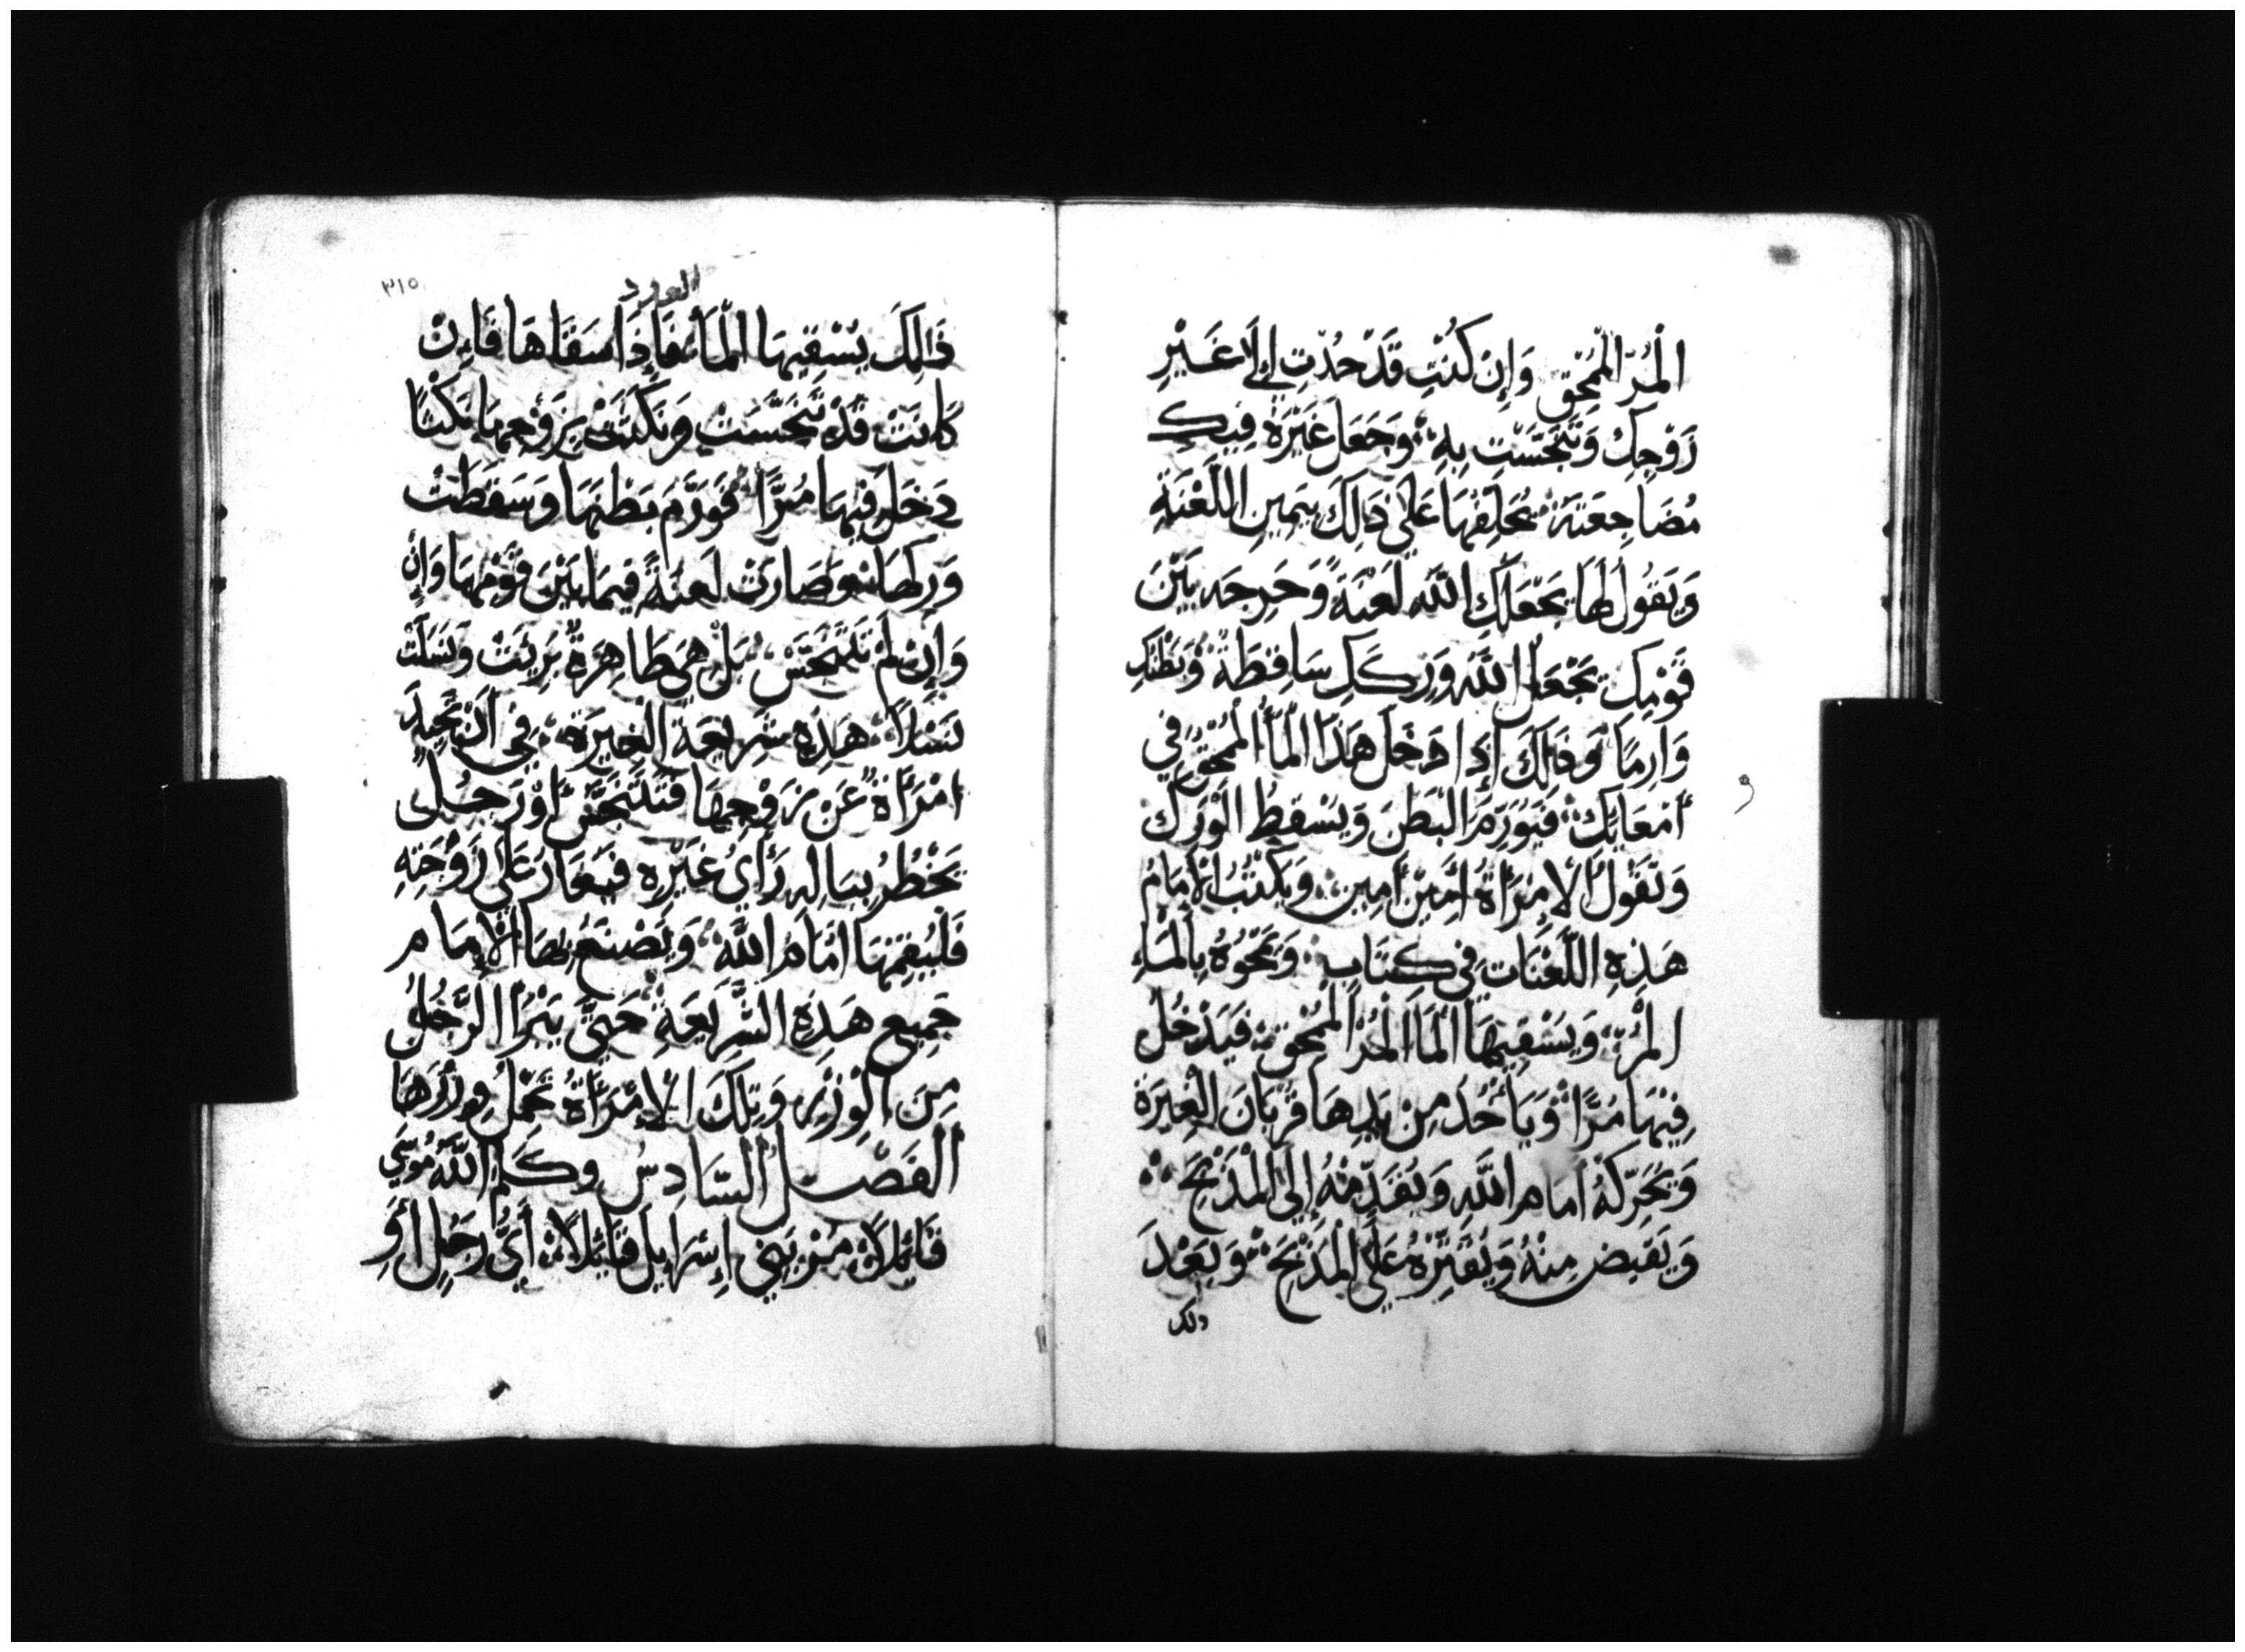 الْمُرّ الْمُمْحِق وَإِنْ كُنْتِ قَدْ حُدْتِ إِلَى غَيْرِ
زَوْجِكِ وَتَنَجَّسْتِ بِهِ وَجَعَلَ غَيْرَهُ فِيكِ
مُضَاجِعَتَهُ يُحَلِّفُهَا عَلَى ذَلِكَ بِيَمِينِ اللَّعْنَةِ
وَيَقُولُ لَهَا يَجْعَلُكِ اللَّه لَعْنَةً وَحَرِجَه بَيْنَ
قَوْمِكِ يَجْعَلُ اللَّه وَرِكَكِ سَاقِطَةً وَبَطْنَكِ
وَارِمًا وَذَلِكَ إِذَا دَخَلَ هَذَا الْمَاُ الْمُمْحِقُ فِي
أَمْعَايِكِ فَيُوَرِّمَ الْبَطْنَ وَيُسْقِطُ الْوَرِكَ
وَتَقُولُ الِامْرَأَةُ أَمِينَ أَمِينَ وَيَكْتُبُ الْإِمَامُ
هَذِهِ اللَّعْنَاتِ فِي كِتَابٍ وَيَمْحُوهُ بِالْمَاءِ
الْمُرّ وَيَسْقِيهَا الْمَا الْمُرَّ الْمُمْحِق فَيَدْخُل
فِيهَا مُرًّا وَيَأْخُذ مِنْ يَدِهَا قُرْبَانَ الْغِيرَة
وَيُحَرِّكُهُ أَمَام اللَّه وَيُقَدِّمُهُ إِلَى الْمَذْبَحِ
وَيَقْبِض مِنْهُ وَيُقَتِّرُهُ عَلَى الْمَذْبَحِ وَبَعْدَ
ذلك
٣١٥
العدد
ذَالِكَ يَسْقِيهَا الْمَاءَ فَإِذَا سَقَاهَا فَإِنْ
كَانَتْ قَدْ تَنَجَّسَتْ وَنَكَثَتْ بِزَوْجِهَا نَكْثًا
دَخَلَ فِيهَا مُرًّا فَوَرَّمَ بَطْنَهَا وَسَقَطَتْ
وَرِكُهَا وَصَارَتْ لَعْنَةً فِيمَا بَيْنَ قَوْمِهَا وَإِنْ
وَإِنْ لَمْ تَتَنَجَّسْ بَلْ هِيَ طَاهِرَةٌ بَرِيَتْ وَنَسَلَتْ
نَسْلًا هَذِهِ شَرِيعَةُ الْغِيرَةِ فِي أَنْ تَحِيدَ
امْرَأَةٌ عَنْ زَوْجِهَا فَتَتَنَجَّس أَوْ رَجُلٌ
يَخْطُرُ بِبَالِهِ رَأْيُ غَيْرِهِ فَيَغَارُ عَلَى زَوْجَتِهِ
فَلْيُقِمْهَا أَمَامَ اللَّه وَيَصْنَعُ بِهَا الْإِمَام
جَمِيعَ هَذِهِ الشَّرِيعَةِ حَتَّى يَبْرَأَ الرَّجُلُ
مِنَ الْوِزْرِ وَتِلْكَ الِامْرَأَةُ تَحْمِلُ وِزْرَهَا
الْفَصْل السَّادِسُ وَكَلَّمَ اللَّهُ مُوسَى
قَائِلًا مُرْ بَنِي إِسْرَايِل قَائِلًا أَيُّ رَجُلٍ أَوِ